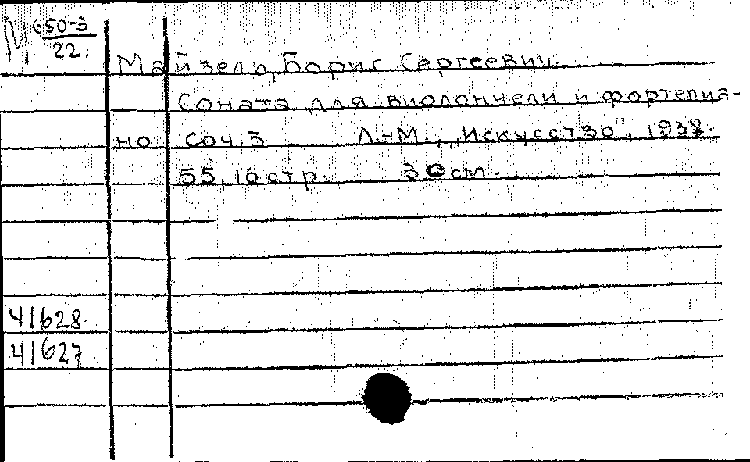 М 650-3
22.
Майзель, Борис Сергеевич.
Соната для виолончели и фортепиа-
но Соч. 3 Л.-М., "Искусство", 1938.
55, 16 стр. 30 см.
41628.
41627